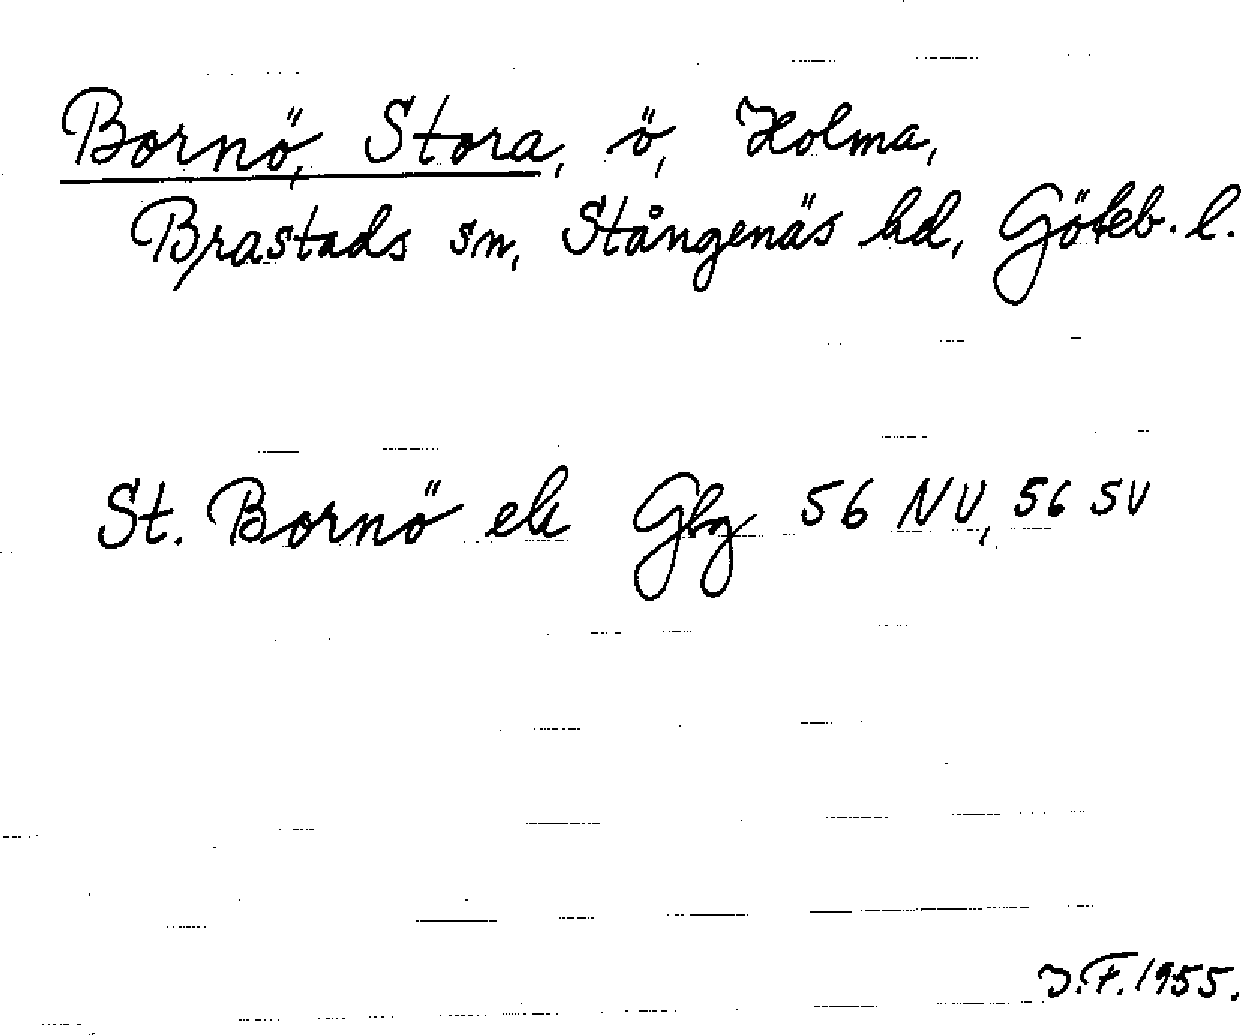 Bornö, Stora, ö, Holma,
Brastads sn, Stångenäs hd, Göteb. l.
St. Bornö ek Gbg 56 NV, 56 SV
J.F. 1955.